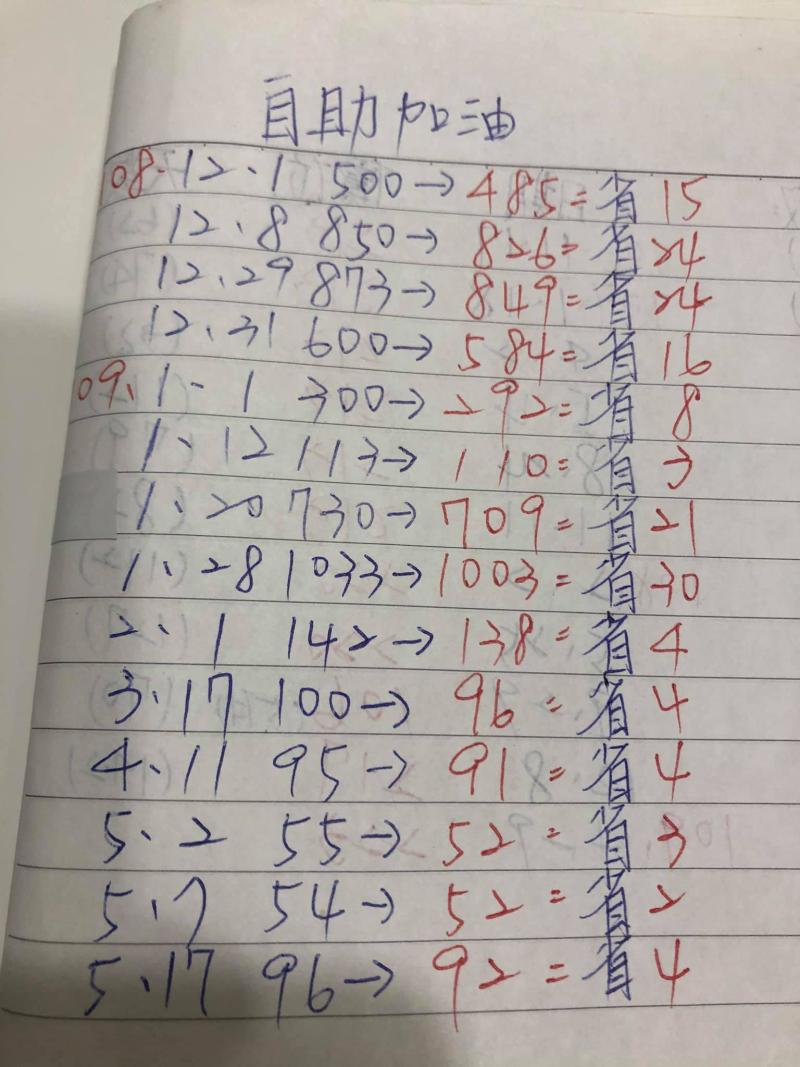 自助加油
08.12.1 500→485=省15
12.8 850→826=省24
12.29 873→849=省24
12.31 600→584=省16
09.1-1 300→292=省8
1.12 113→110=省3
1.20 730→709=省21
1.28 1033→1003=省30
2.1 142→138=省4
3.17 100→96=省4
4.11 95→91=省4
5.2 55→52=省3
5.7 54→52=省2
5.17 96→92=省4